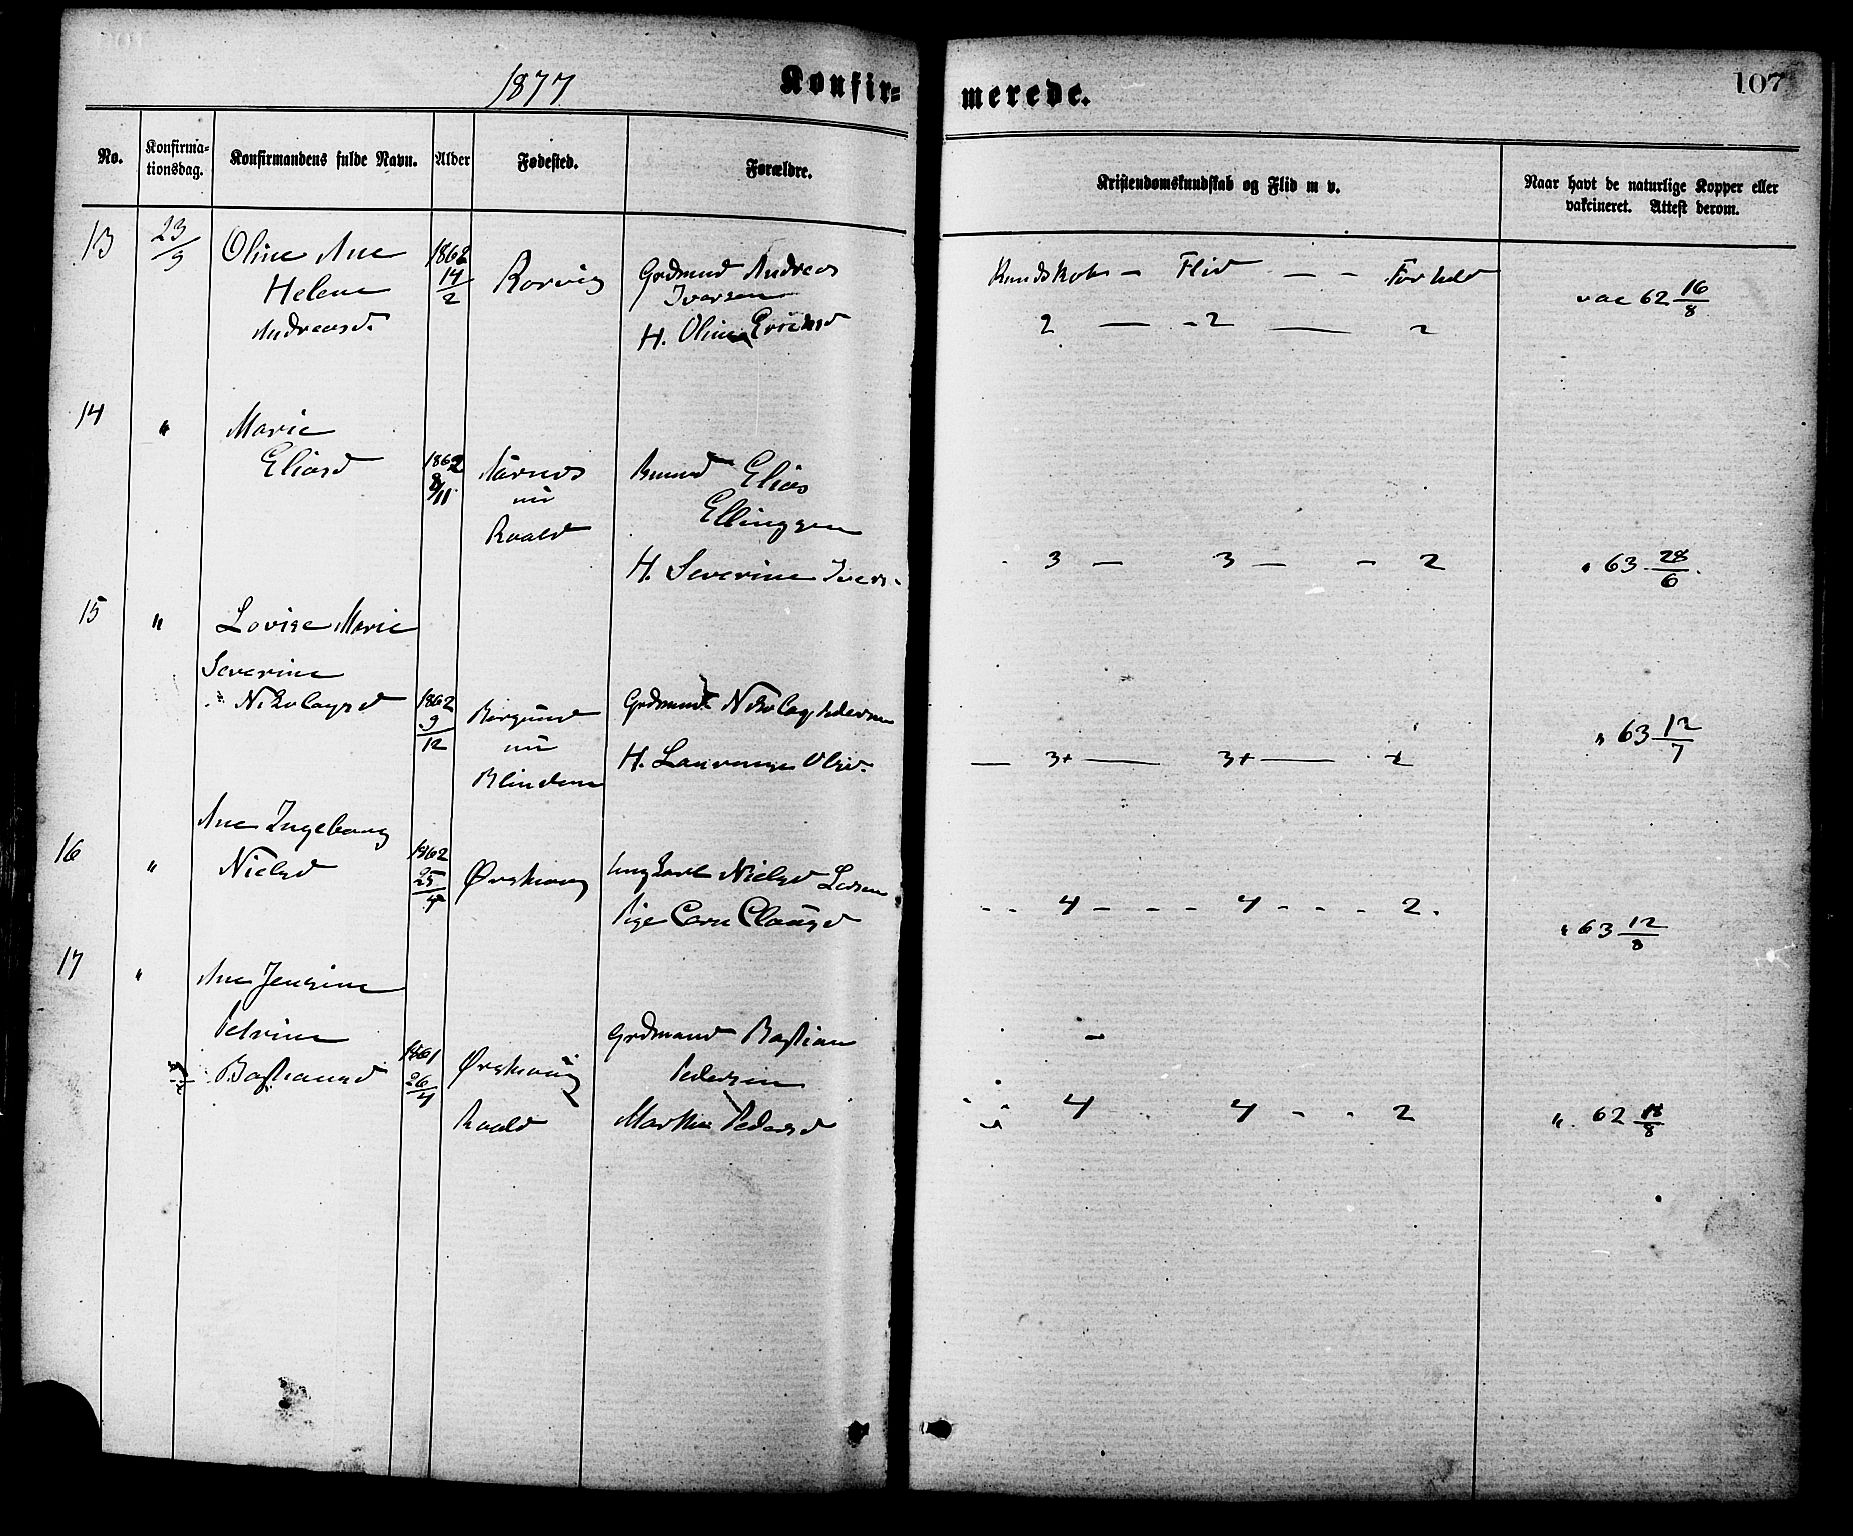 1877 Konfir=
merede. 107
No. Konfirma-
tionsdag. Konfirmandens fulde Navn. Alder Fødested. Forældre.
Kristendomskundskab og Flid m v. Naar havt de naturlige Kopper eller
vakcineret. Attest derom.
13 23/9 Oline Ane 1862
Helene 14/2 Rorvig Grdmand Andreas
Iversen
Andreasd. H. Oline
Kundskab — Flid — — Forhold
2 — - 2 — 2 vac 62 16/8
14 " Marie
Eliasd 1862
8/11 Aarnes
nu
Roald
Elias
Ellingsen
H. Severine Ivers.
3 — 3 — - 2 " 63 28/6
15 " Lovise Marie
Severine
Nikolaysd 1862
9/12 Borgund
nu
Blindem
Grdmand Nikolay Pedersen
H. Laurense Olsd.
— 3+ — 3+ — 2 " 63 12/7
Ane Ingeborg
16 " Nielsd 1862
25/4 Ørskoug Ungkarl
Pige
4 - - - 4 - - - 2. " 63 12/8
17 " Ane Jensine
Petrine
Bastiansd 1861
26/4 Ørskoug
Roald
Grdmand Bastian
Pedersen
Marthe Pedersd
4 4 - - 2 " 62 18/8